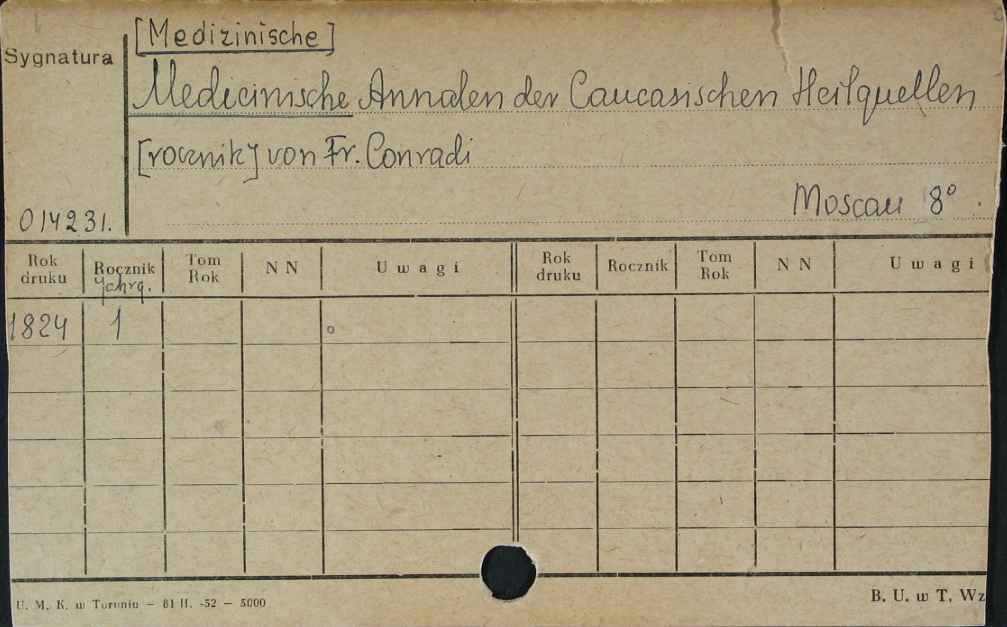 [Medizinische]
Sygnatura
Medicinische Annalen der Caucasischen Heilquellen
[rocznik] von Fr. Conradi
Moscau 8°
014231.
Rok druku Rocznik Tom Rok N N U w a g i Rok druku Rocznik Tom Rok N N U w a g i
1824 1
U. M. K. w Toruniu — 61 II. -52 — 5000
B. U. w T. Wz